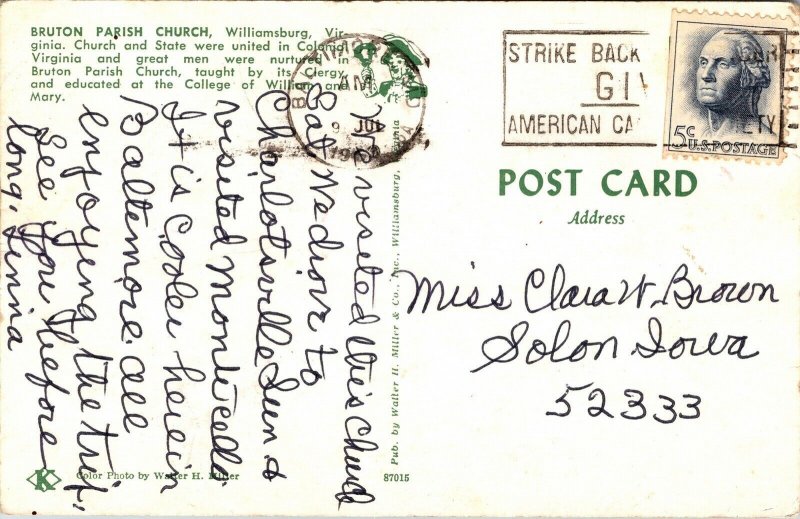 BRUTON PARISH CHURCH, Williamsburg, Vir-
ginia. Church and State were united in Colonial
Virginia and great men were nurtured in
Bruton Parish Church, taught by its Clergy,
and educated at the College of William and
Mary.
We visited this Church
Sat. We drove to
Charlotsville Sun &
visited Monticello
It is cooler here in
Baltemore. all
enjoyeng the trip.
See you before
long.
Color Photo by Walter H. Miller
87015
Pub. by Walter H. Miller & Co., Inc., Williamsburg, Virginia
AM
STRIKE BACK
GIV
AMERICAN CA
ETY
5c
U.S. POSTAGE
POST CARD
Address
Miss Clara W. Brown
Solon Iowa
52333